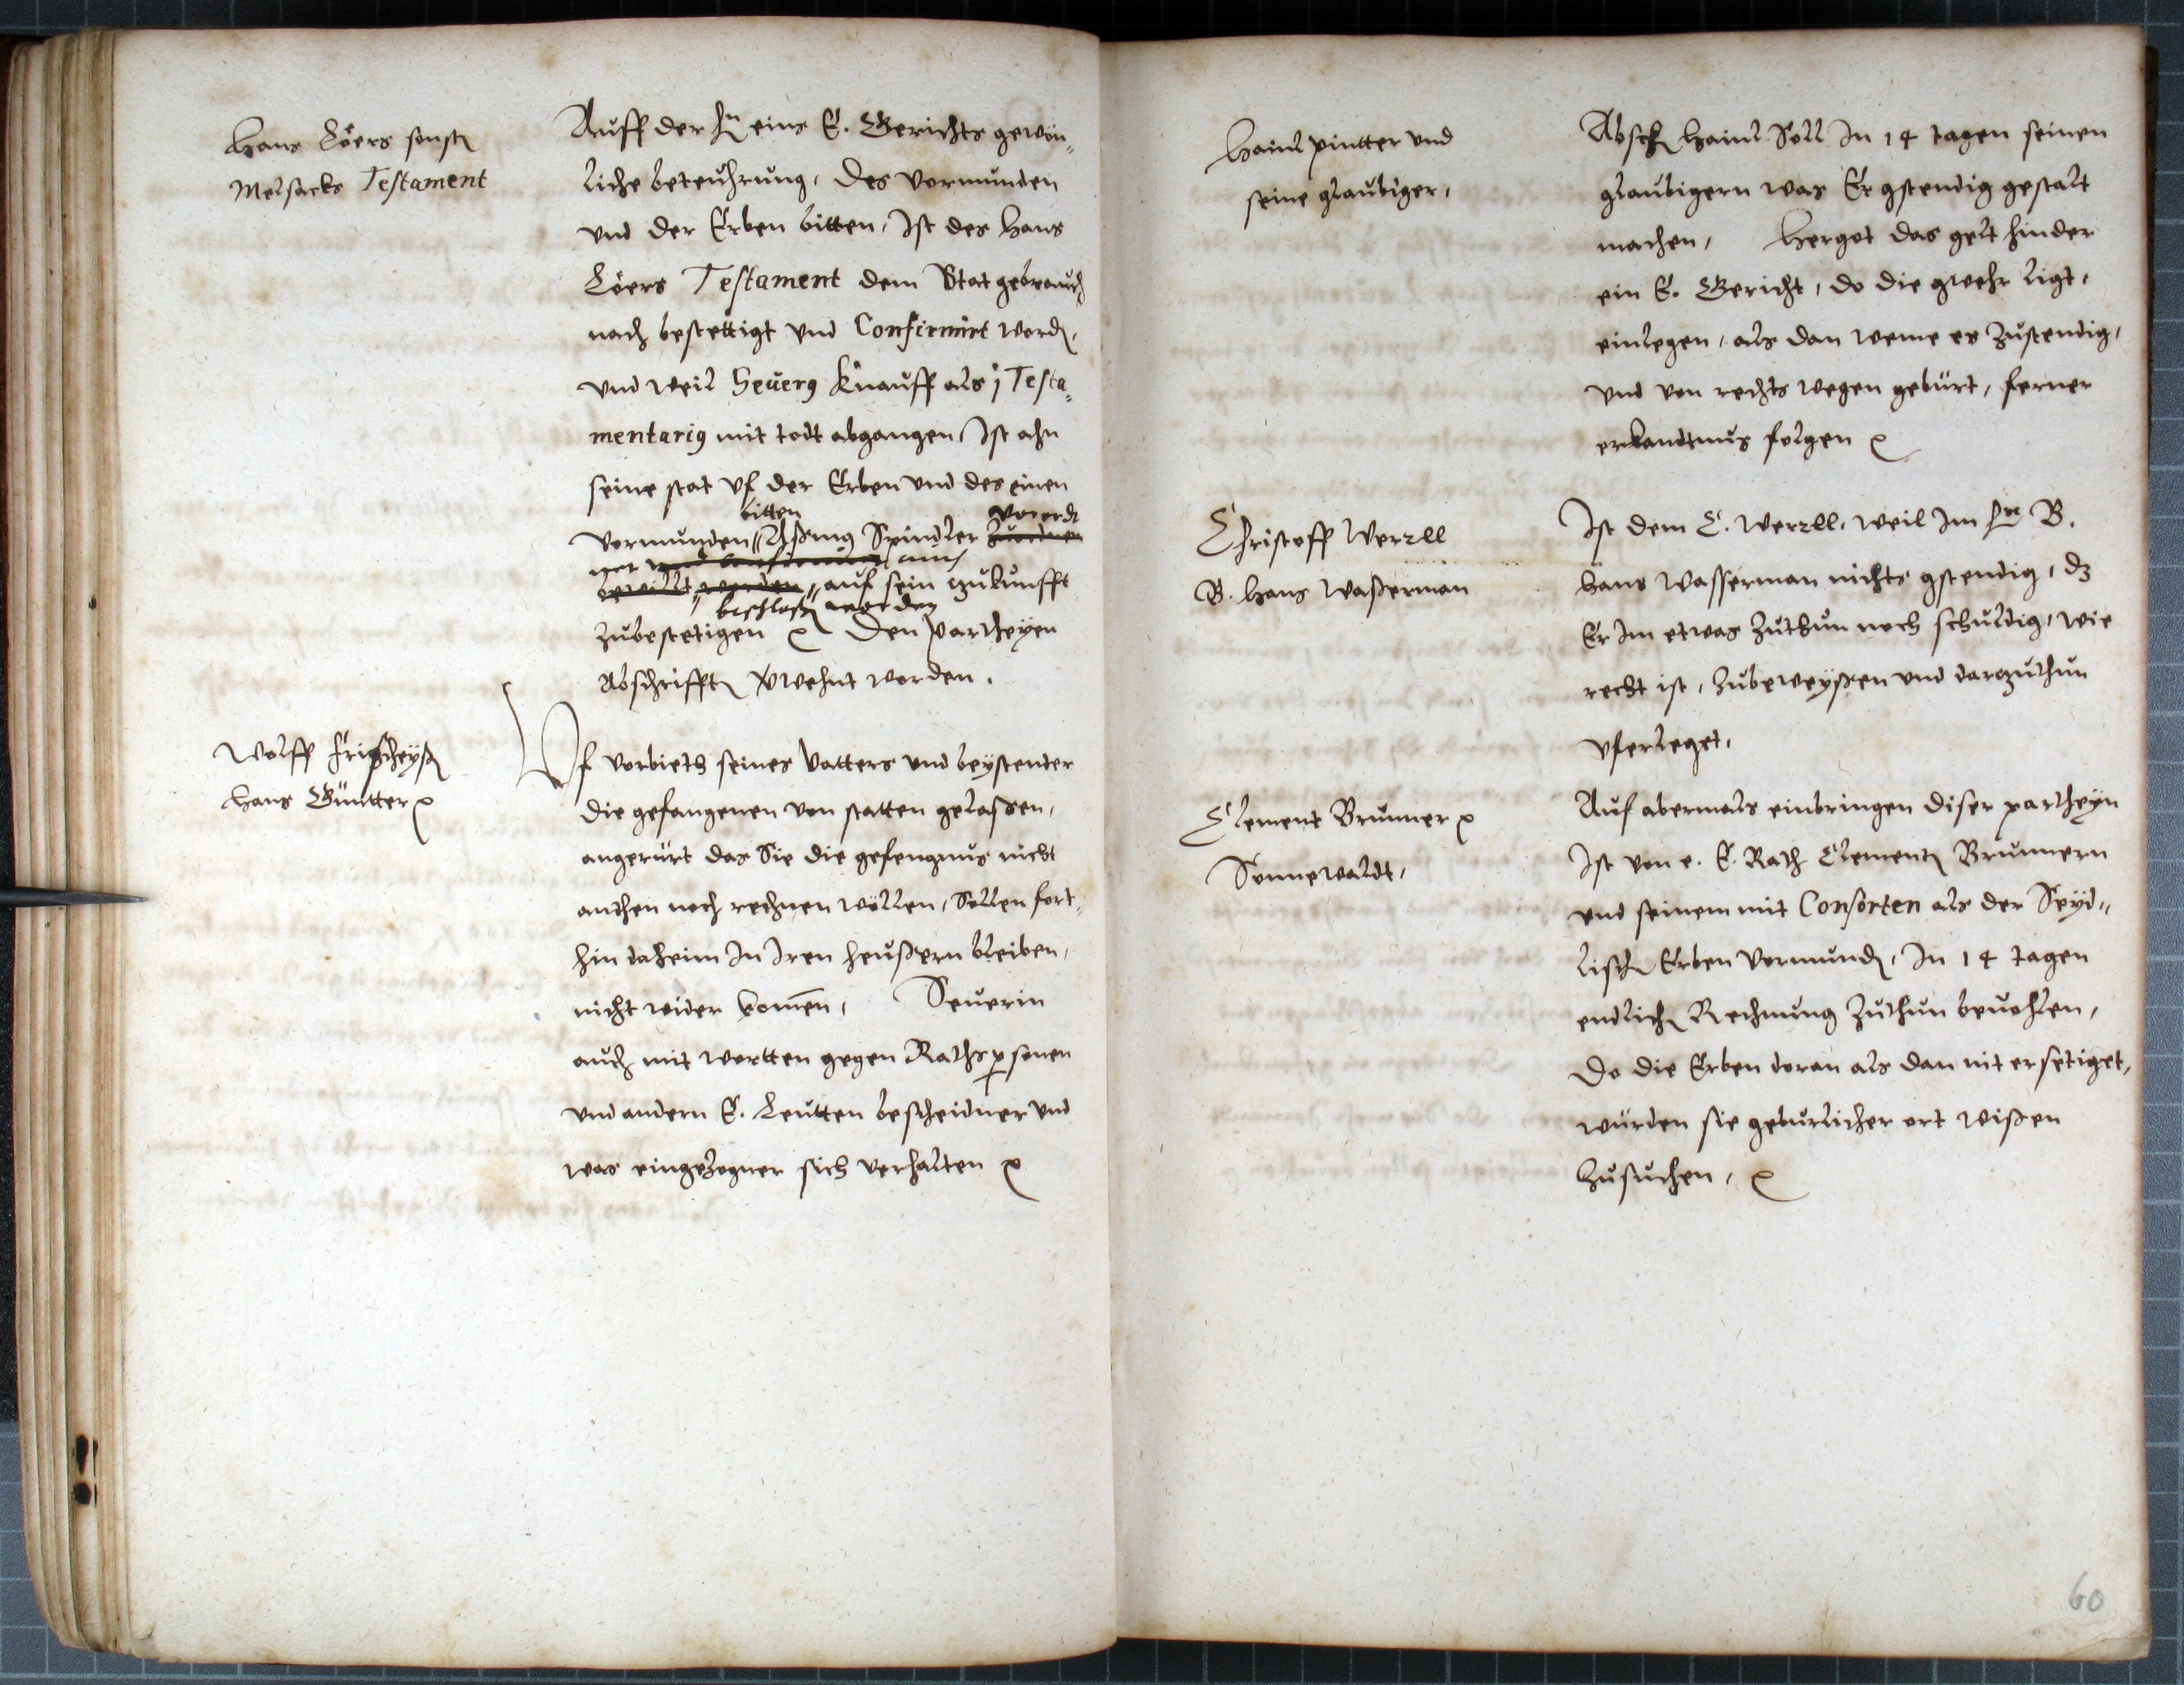 Hans Löers sonst
Melsacks Testament
Auff der hn eins E. Gerichts gewön¬
liche beteuhrung, des vormunden
vnd der Erben bitten, Ist des Hans
Löers Testament dem Stat gebrauch
nach bestettigt vnd Confirmirt word,
vnd weil Seuerg Knauff als j Testa¬
mentarig mit todt abgangen, Ist ahn
seine stat vf der Erben vnd des einen
bitten
vormunden Aßmg Spindler
bewillt worden auf sein zukunfft
beschloß worden
zubestetigen Den Partheyen
Abschrifft worden.
Wolff
Hans Güntter
Vf vorbieth seines Vatters vnd beystender
die gefangenen von statten gelaßen,
angerürt das Sie die gefengnus nicht
anthen noch rechnen wöllen, Sollen fort¬
hin daheim In Iren heußern bleiben,
nicht wider komen, Seuerin
auch mit wortten gegen Raths psonen
vnd andern E. Leutten bescheidner vnd
was eingezogner sich verhalten
Hainl pintter vnd
seine glaubiger,
Absch Hainl Soll In 14 tagen seinen
glaubigern was Er gstendig gestalt
machen, Hergot das gelt hinder
ein E. Gericht, do die gwehr ligt,
einlegen, als dan weme es zustendig,
vnd von rechts wegen gebürt, ferner
erkandtnus folgen
Christoff Werzll
B. Hans Waßerman
Ist dem C. Werzll, weil Im hr B.
Hans Wasserman nichts gstendig, dz
Er Im etwas zuthun noch schuldig, wie
recht ist, zubeweyßen vnd darzuthun
vferleget,
Clement Brunner
Sonnewaldt,
Auf abermals einbringen diser partheyn
Ist von e. E. Rath Clement Brunnern
vnd seinem mit Consorten als der Seyd¬
lisch Erben Vormund, In 14 tagen
endlich Rechnung zuthun beuohlen,
Do die Erben doran als dan nit ersetiget,
würden sie geburlicher ort wißen
zusuchen,
60